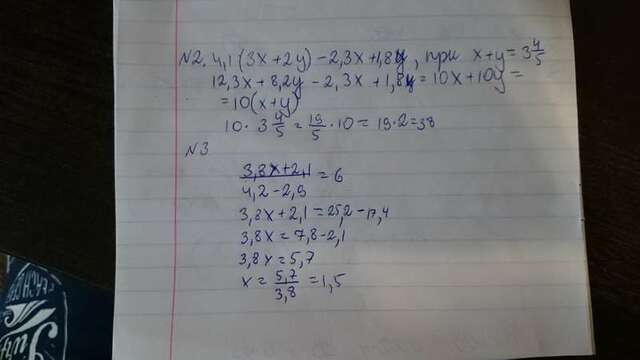 №2. 4,1(3x+2y)-2,3x+1,8y, при x+y=3 4/5
12,3x+8,2y-2,3x+1,8y=10x+10y=
=10(x+y)
10·3 4/5=19/5·10=19·2=38
№3
(3,8x+2,1)/(4,2-2,9)=6
3,8x+2,1=25,2-17,4
3,8x=7,8-2,1
3,8x=5,7
x=5,7/3,8=1,5